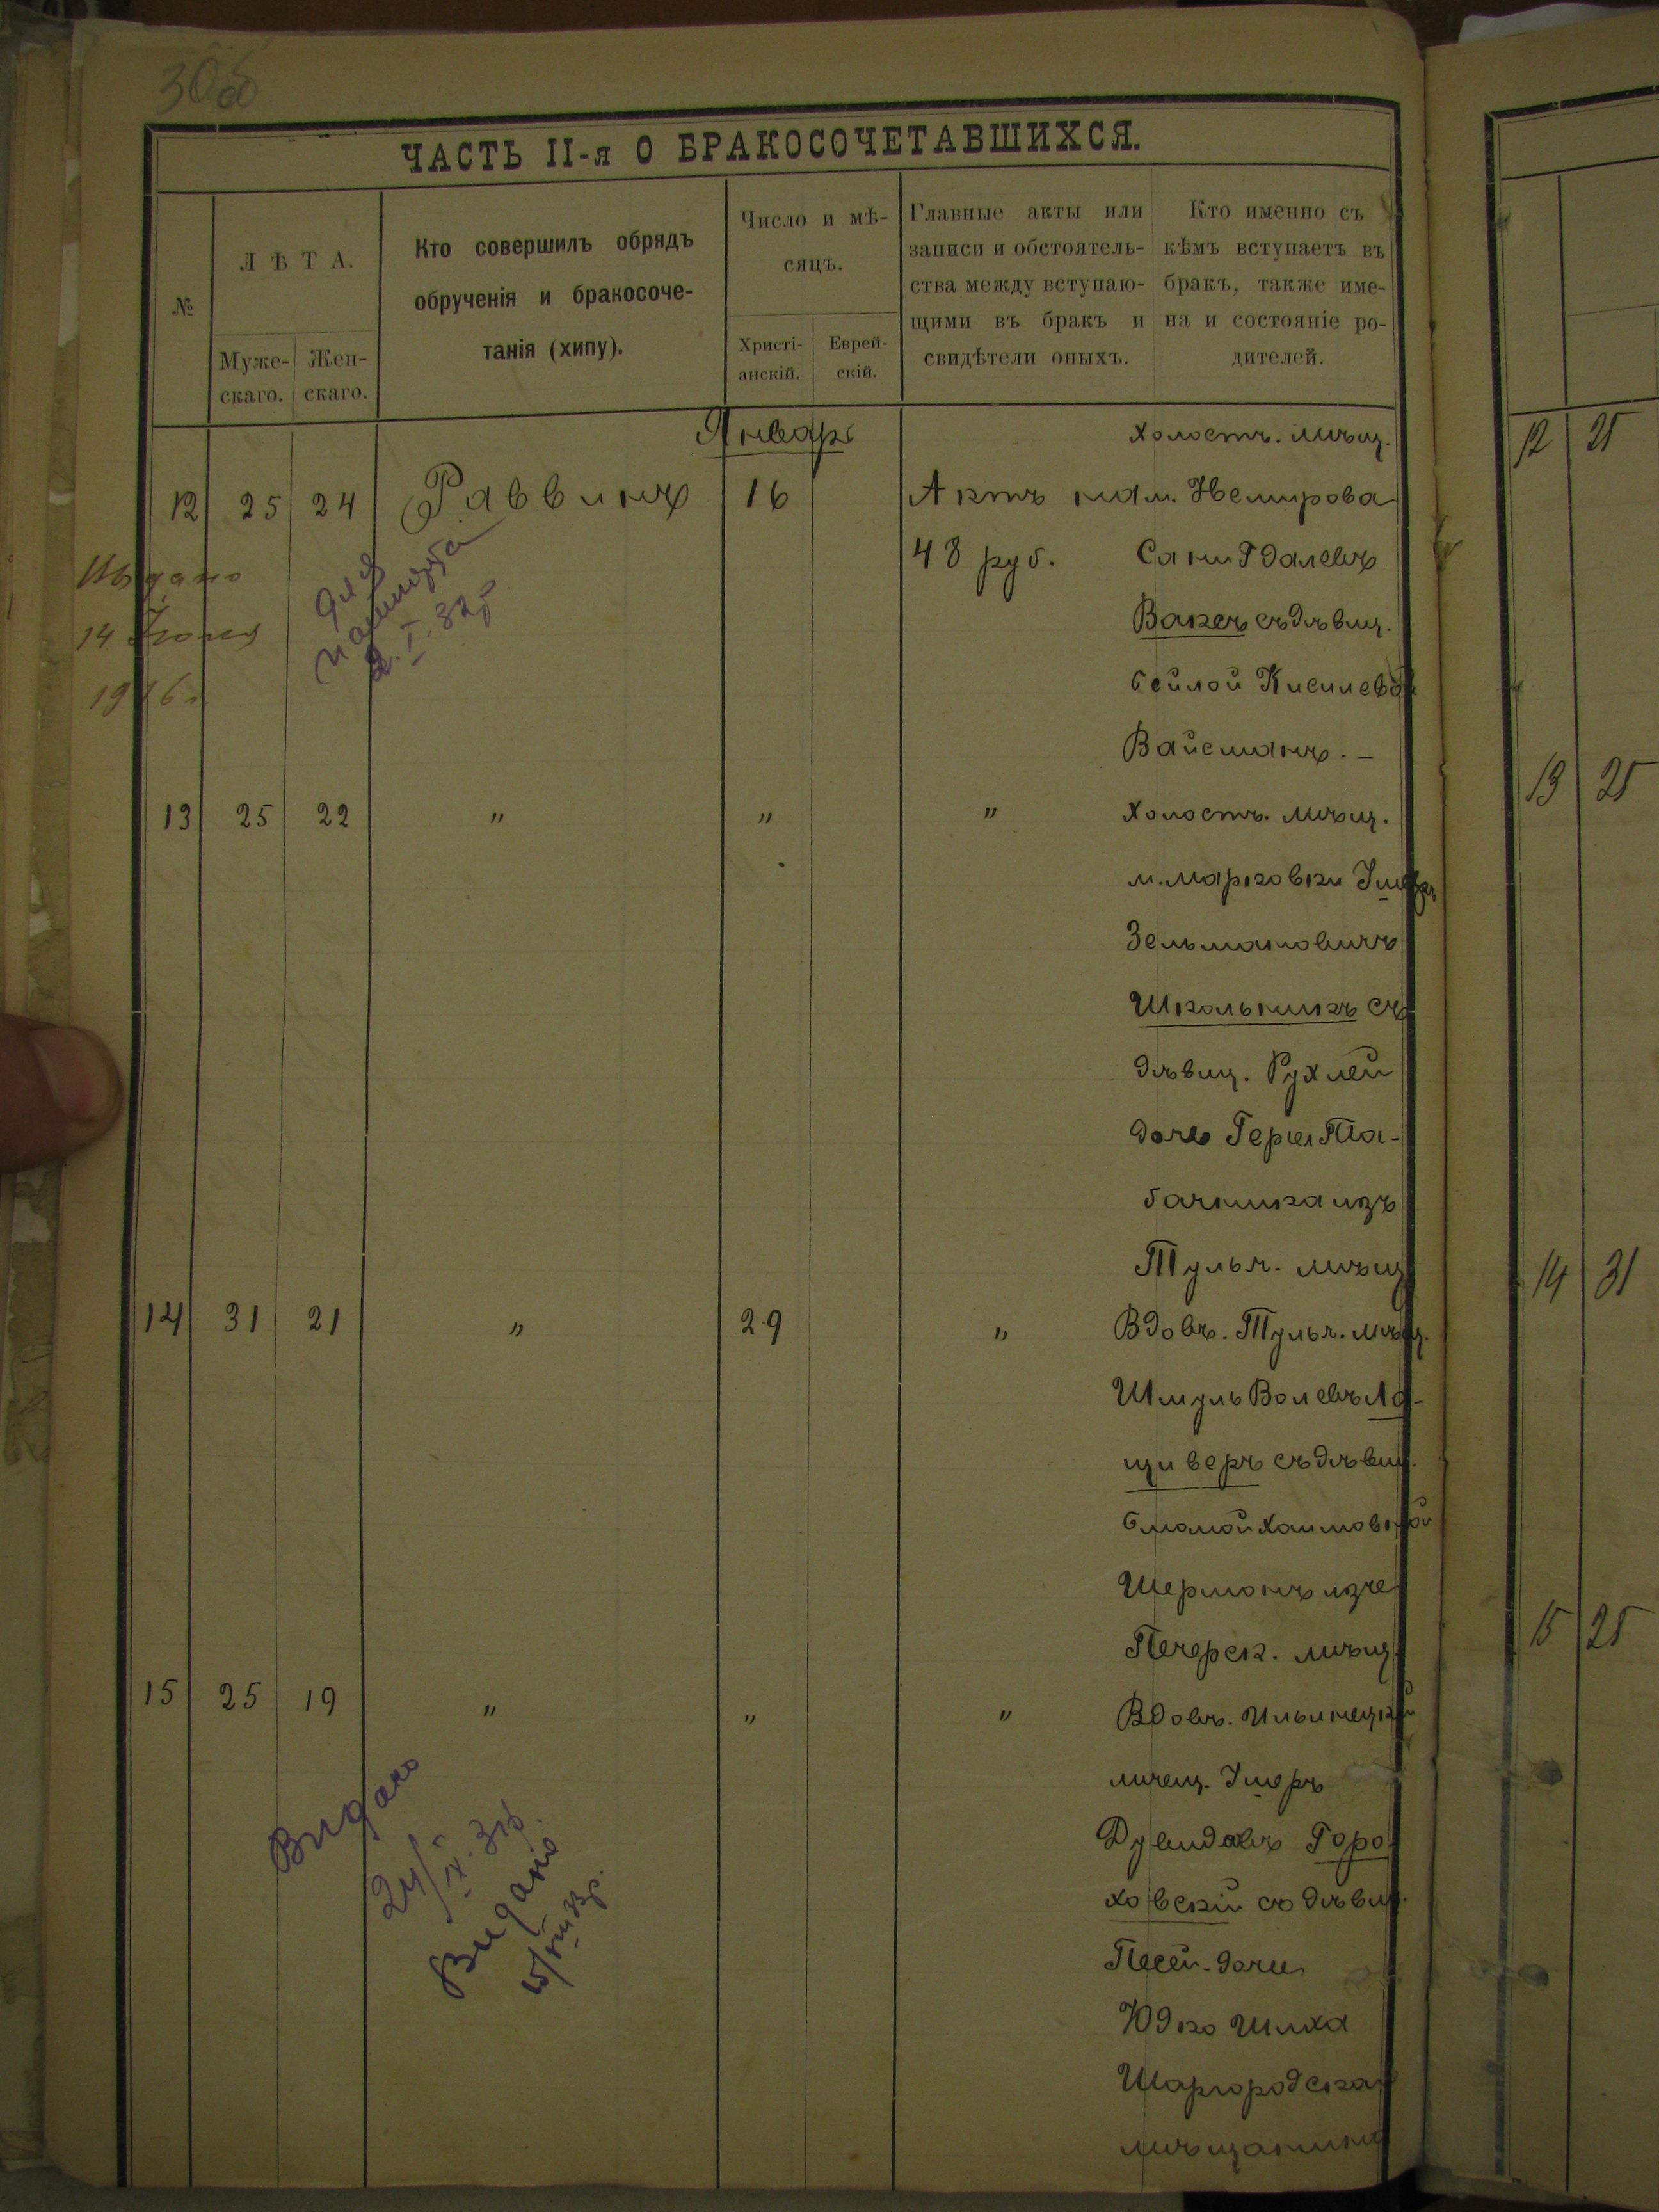 30об
ЧАСТЬ II-я О БРАКОСОЧЕТАВШИХСЯ.
№
ЛѢТА.
Муже-
скаго.
Жен-
скаго.
Кто совершилъ обрядъ
обрученія и бракосоче-
танія (хипу).
Число и мѣ-
сяцъ.
Христі-
анскій.
Еврей-
скій.
Главные акты или
записи и обстоятель-
ства между вступаю-
щими въ бракъ и
свидѣтели оныхъ.
Кто именно съ
кѣмъ вступаетъ въ
бракъ, также име-
на и состояніе ро-
дителей.
Январь
Холостъ. мѣщ.
12 25 24 Раввинъ 16 Актъ на м. Немирова
48 руб. Гдалевъ
Выдано
14 Июня
для
2.I.32р
съ дѣвиц.
Бейлой
Вайсманъ. –
13 25 22 " " " Холостъ. мѣщ.
м. Марковки
Зельмановичъ
Школьникъ съ
дѣвиц. Рухлей
дочь Герша Та-
бачника изъ
Тульч. мѣщ.
14 31 21 " 29 " Вдовъ. Тульч. мѣщ.
Шмуль Волевъ Ла-
щиверъ съ дѣвиц.
Хаимовной
Шерманъ изъ
Печерск. мѣщ.
15 25 19 " " " Вдовъ. Ильинецкій
мѣщ. Ушеръ
Дувидовъ Горо-
ховскій съ дѣвиц.
Песей-дочь
Юдко
Шаргородскаго
мѣщанина
Видано
24/IX-31р.
Видано
12 25
13 25
14 31
15 25